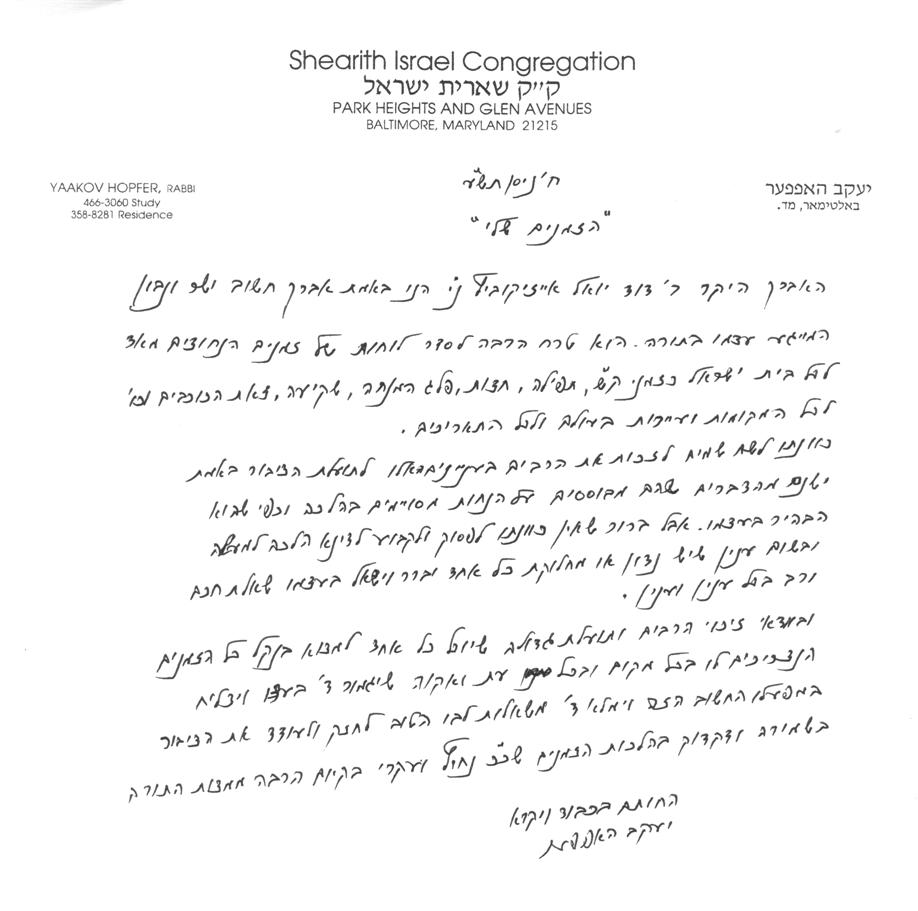 Shearith Israel Congregation
ק״ק שארית ישראל
PARK HEIGHTS AND GLEN AVENUES
BALTIMORE, MARYLAND 21215
YAAKOV HOPFER, RABBI
466-3060 Study
358-8281 Residence
יעקב האפפער
באלטימאר, מד.
ח' ניסן תש"ע
"הזמנים שלי"
האברך היקר ר' דוד יואל אייזיקוביץ נ"י הנו באמת אברך חשוב ישר ונבון
המייגע עצמו בתורה. הוא טרח הרבה לסדר לוחות של זמנים הנחוצים מאד
לכל בית ישראל כזמני ק"ש, תפילה, חצות, פלג המנחה, שקיעה, צאת הכוכבים וכו'
לכל המקומות ועיירות בעולם ולכל התאריכים.
כוונתו לש"ש לזכות את הרבים בעניינים האלו לתועלת הציבור באמת
ישנם מהדברים שהם מבוססים על הנחות מסויימים בהלכה וכפי שהוא
הבהיר בעצמו. אבל ברור שאין כוונתו לפסוק ולקבוע לדינא הלכה למעשה
ובשום ענין שיש נדון או מחלוקת כל אחד יברר וישאל בעצמו שאלת חכם
ורב בכל ענין וענין.
ובודאי זיכוי הרבים ותועלת גדולה שיוכל כל אחד למצוא בנקל כל הזמנים
הנצריכים לו בכל מקום ובכל עת ואקוה שיגמור ד' בעדו ויצליח
במפעלו החשוב הזה וימלא ד' משאלות לבו הטוב לחזק ולעודד את הציבור
בשמירה ודקדוק בהלכות הזמנים שכ"כ נחוץ ועקרי בקיום הרבה ממצות התורה
החותם בכבוד ויקרא
יעקב האפפער